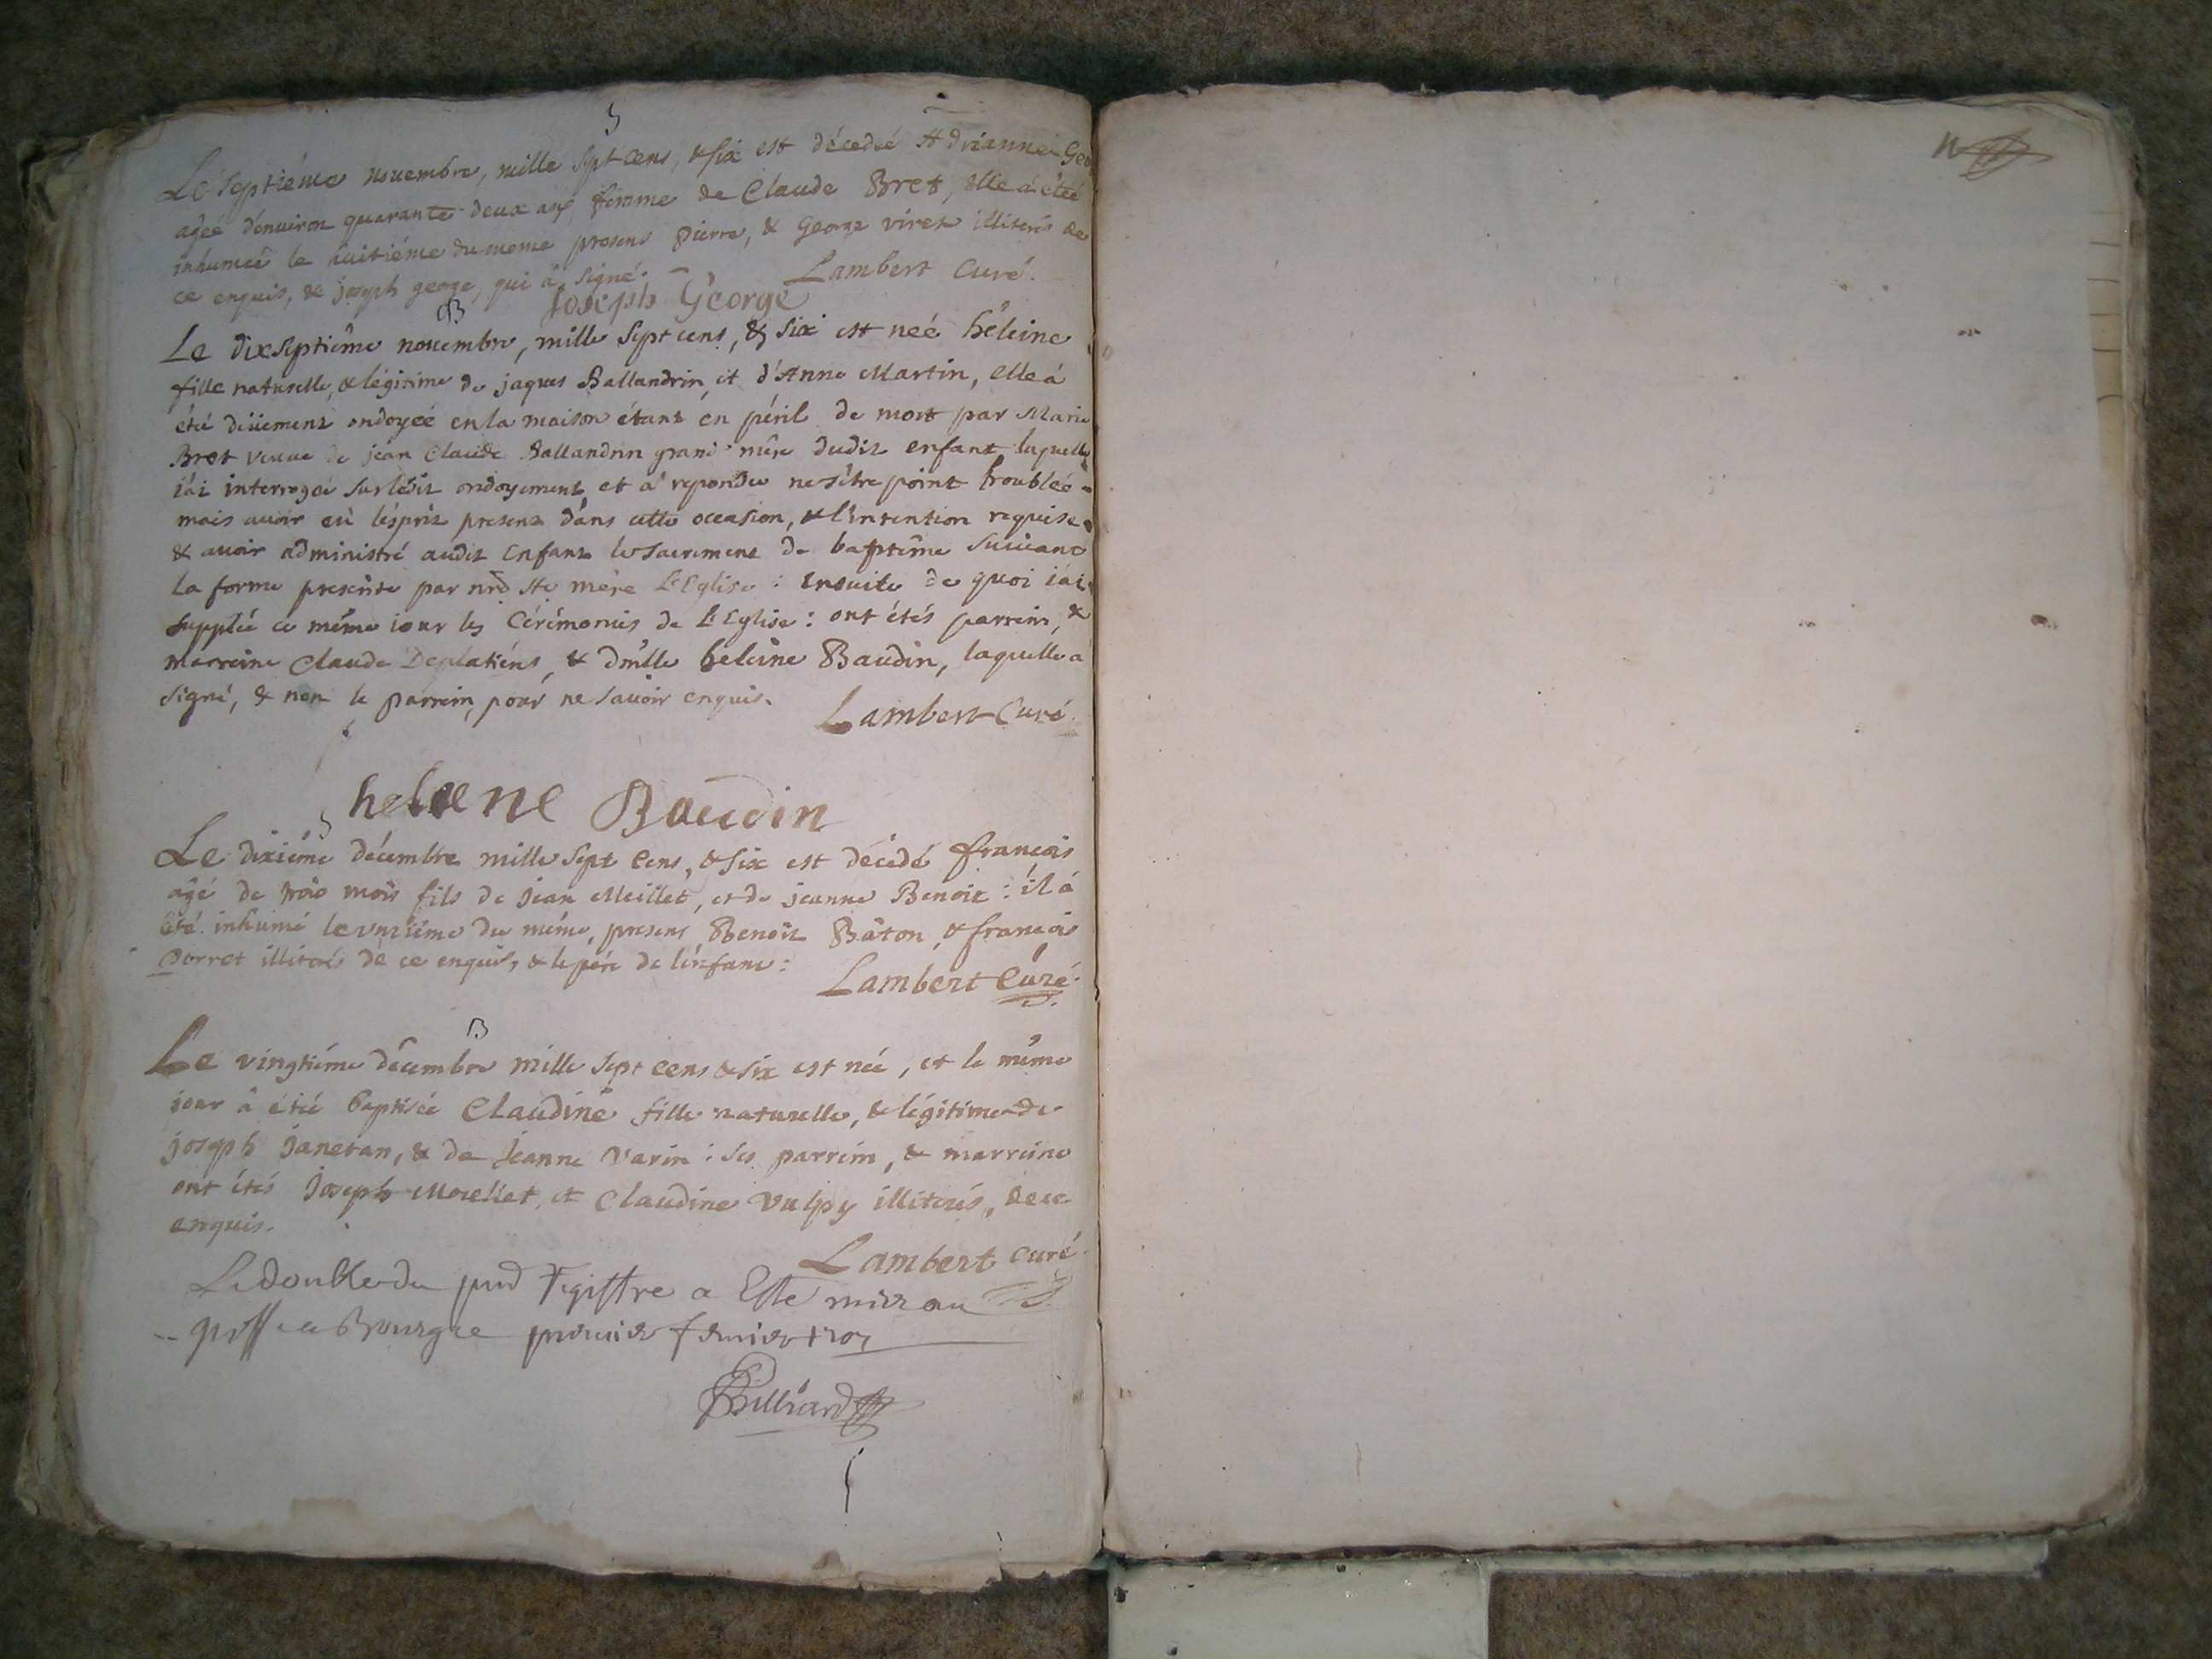 S
Le septiéme nouembre, mille sept cens, & six est décedeé Adrianne Geo
agéé d'enuiron quarante deux ans, femme de Claude Bret, elle a étéé
inhumeé le huitiéme du meme presens pierre, & George viret illiterés de
ce enquis, & joseph george, qui à signé. Lambert Curé.
Joseph George
B
Le dixseptiême nouembre, mille sept cens, & six est neé héleine
fille naturelle, & légitime de jaques Ballandrin, et d'Anne Martin, elle á
été düement ondoyeé en la maison étant en péril de mort par Marie
Bret veuue de jean Claude Ballandrin grand mére dudit enfant laquelle
i'ái interrogeé sur ledit ondoyement, et á repondu ne s'être point troubleé
mais auoir eû l'ésprit present dans cette occasion, & l'intention requise
& auoir administré audit enfant le sacrement de baptême suiuant
la forme prescrite par nre ste mére L'Eglise : ensuite de quoi i'ai
suppleé ce même iour les Cérémonies de L'Eglise : ont étés parrein, &
marreine Claude Deplatiéns, & dmlle heleine Baudin, laquelle a
signé, & non le parrein, pour ne sauoir enquis.
Lambert Curé.
helene Baudin
S
Le dixiéme décembre mille sept cens, & six est décedé françois
agé de trois mois fils de jean Meillet, et de jeanne Benoit : il á
été inhumé le unziéme du méme, presens Benoit Bâton, & françois
Dorret illiterés de ce enquis, & le pére de l'enfant :
Lambert Curé.
B
Le vingtiéme décembre mille sept cens & six est neé, et le méme
jour à étéé baptiseé Claudine fille naturelle, & légitime de
joseph janetan, & de Jeanne Varin : ses parrein, & marreine
ont étés joseph Morellet, et Claudine Vulpy illiterés, de ce
enquis.
Lambert curé.
Le double du pnt Registre a Esté mis au
greffe a Bourg le premier feurier 1707
Billiard